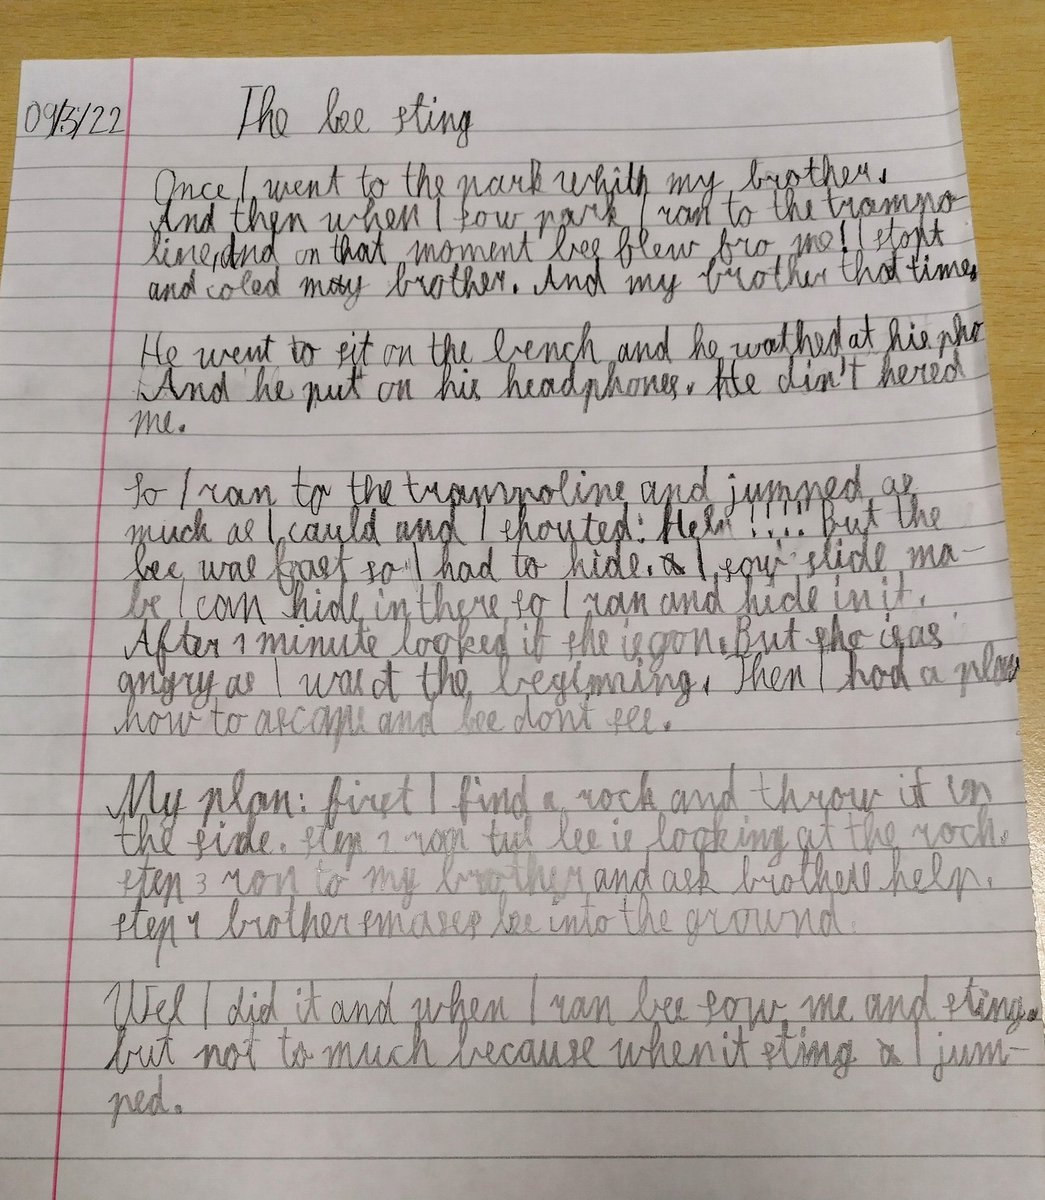 09/3/22 The bee sting
Once I went to the park whith my brother.
And then when I sow park I ran to the trampo
line, And on that moment bee flew fro me! I stopt
and coled may brother. And my brother that times
He went to sit on the bench and he wathed at his pho
And he put on his headphones. He din't hered
me.
So I ran to the trampoline and jumped as
much as I cauld and I shouted: Help !!!! But the
bee was fast so I had to hide. I sow slide ma-
be I can hide in there so I ran and hide in it.
After 1 minute looked if she is gon. But she is as
angry as I was at the beginning. Then I had a plan
how to ascape and bee dont see.
My plan: first I find a rock and throw it in
the side. step 2 ran tul bee is looking at the rock.
step 3 ron to my brother and ask brothers help.
step 4 brother smases bee into the ground.
Wel I did it and when I ran bee sow me and sting.
but not to much because when it sting I jum-
ped.